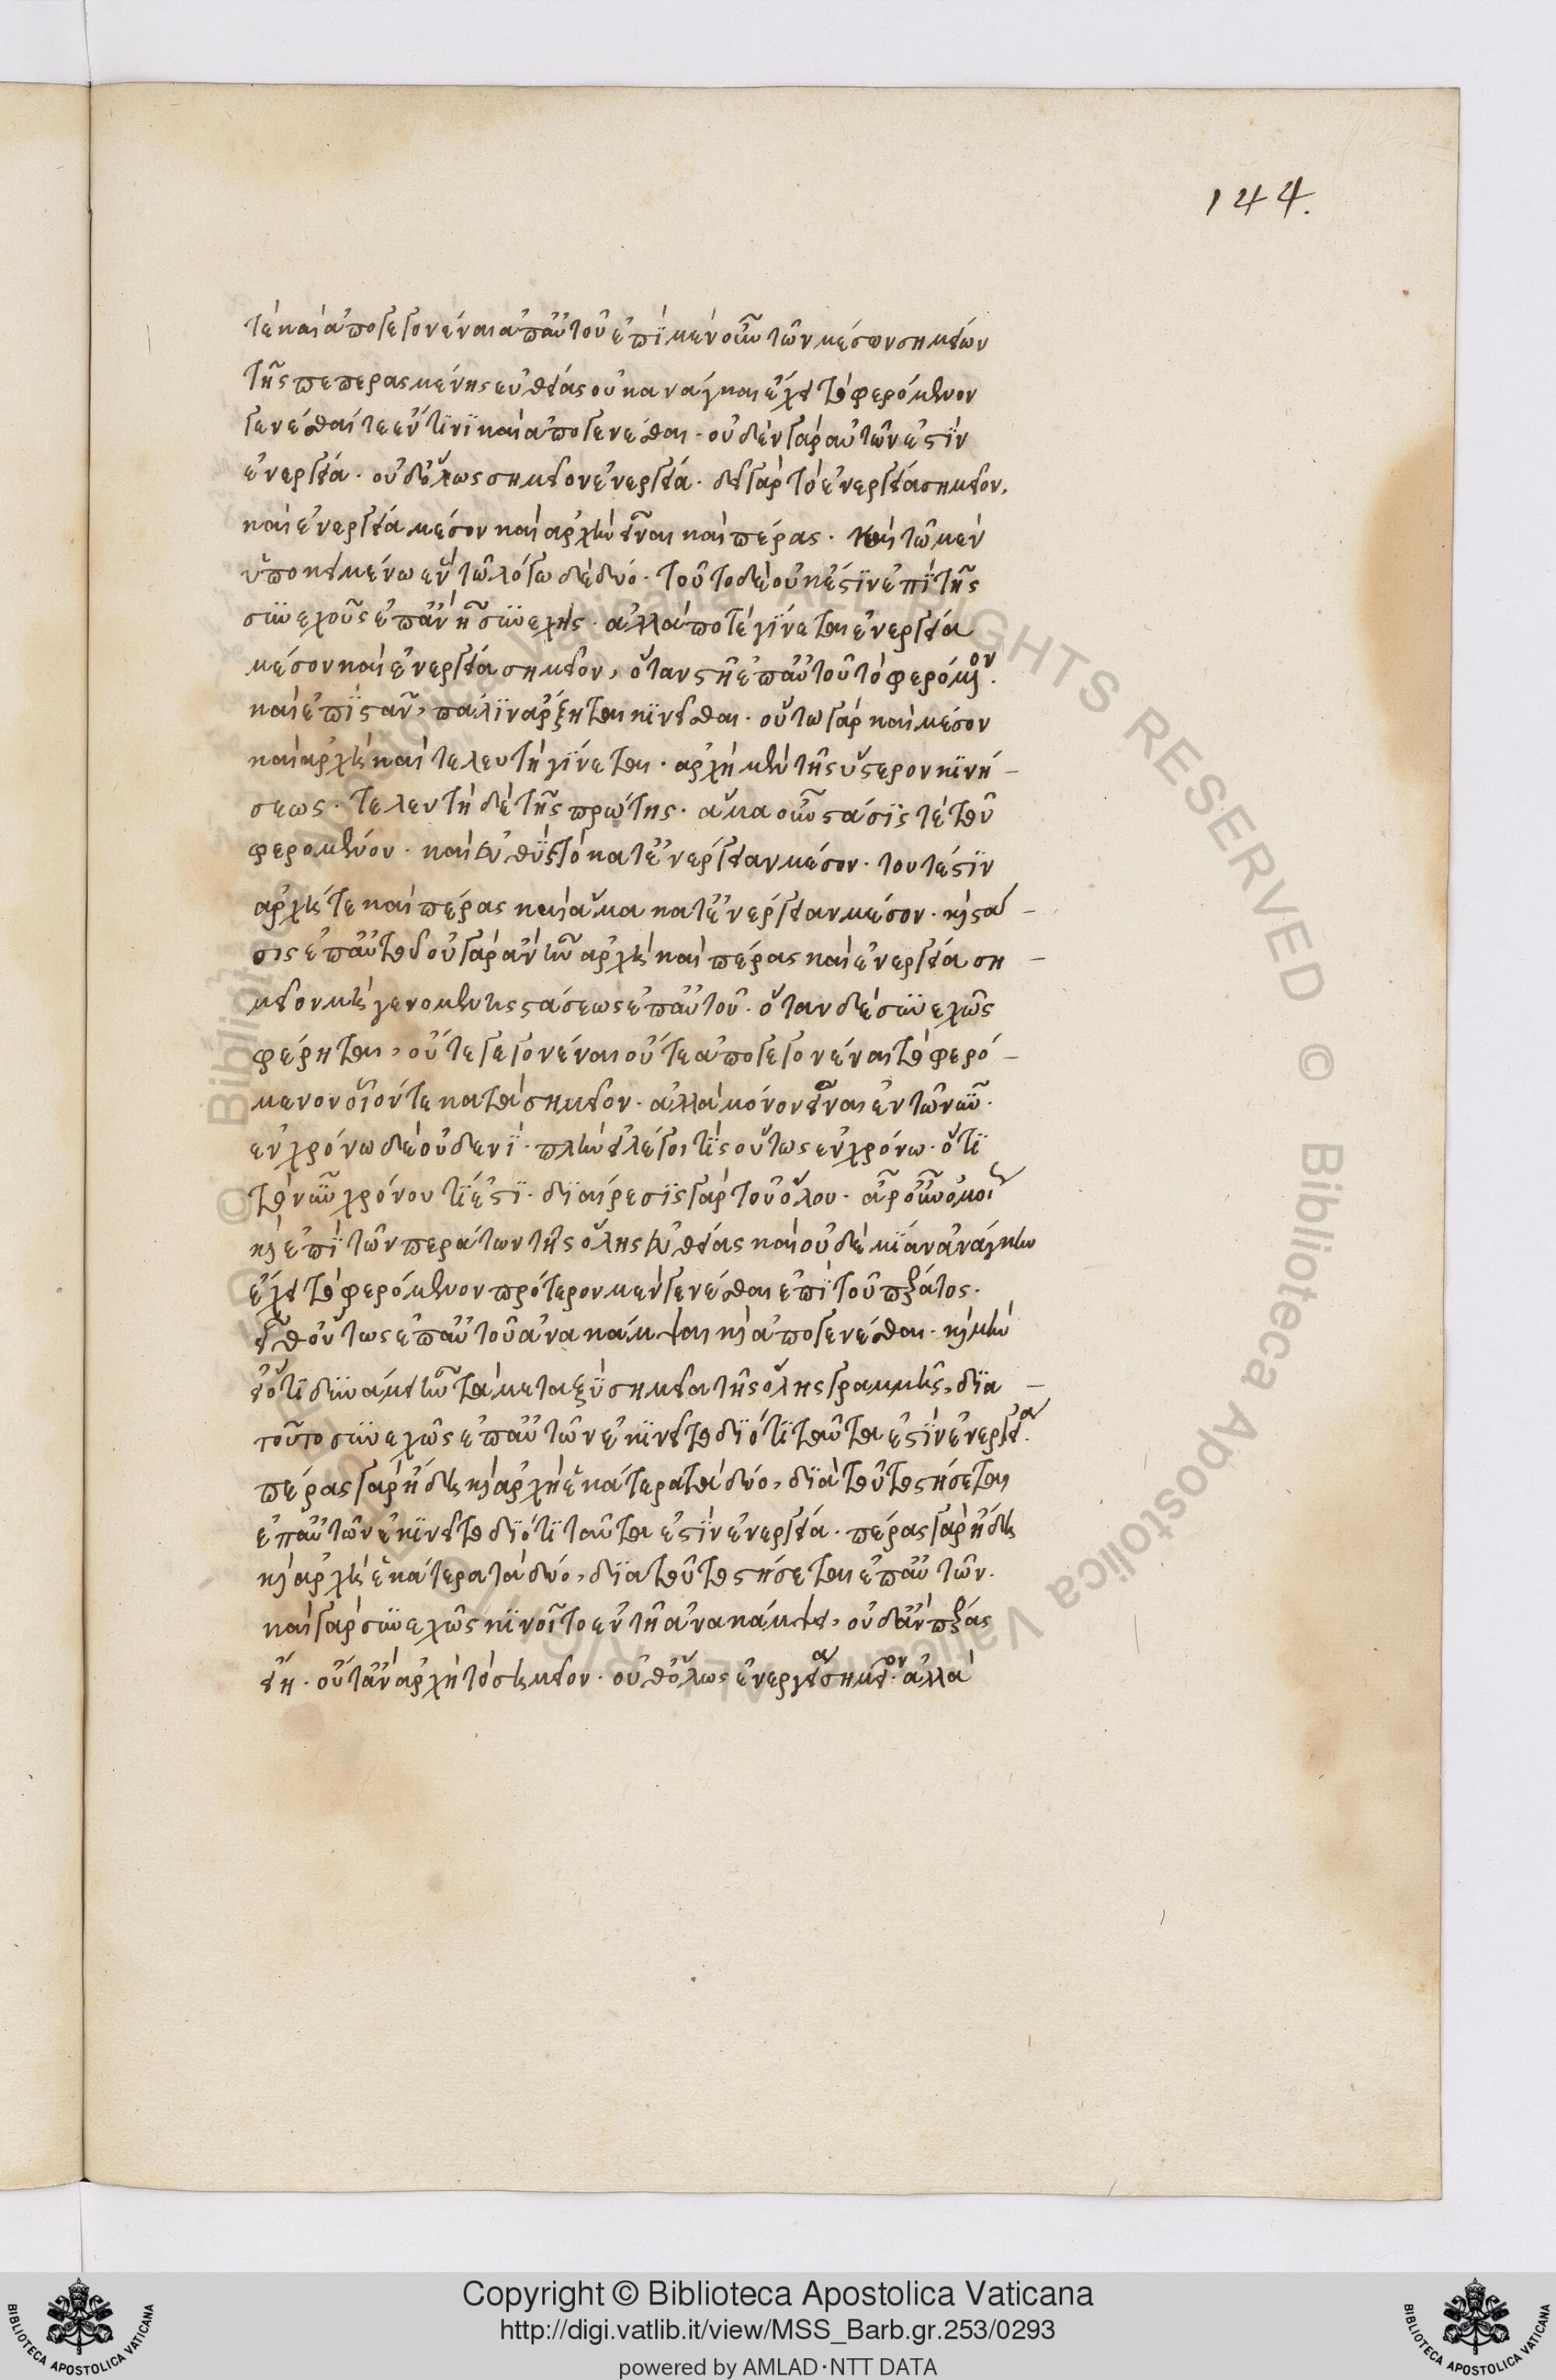 144.
τὲ καὶ ἀπογεγονέναι ἀπ' αὐτοῦ ἐπὶ μὲν οὖν τῶν μέσων σημείων
τῆς πεπερασμένης εὐθείας οὐκ ἀναγκαι ἔχει τὸ φερόμενον
γενέσθαί τε ἔν τινι καὶ ἀπογενέσθαι. οὐδὲν γὰρ αὐτῶν ἐστὶν
ἐνεργεία. οὐδ' ὅλως σημεῖον ἐνεργεία. δεῖ γὰρ τὸ ἐνεργεία σημεῖον,
καὶ ἐνεργεία μέσον καὶ ἀρχὴν εἶναι καὶ πέρας. καὶ τῶ μὲν
ὑποκειμένω ἓν τῶ λόγω δὲ δύο. τοῦτο δὲ οὐκ ἔστιν ἐπὶ τῆς
συνεχοῦς ἐπὰν ἦ συνεχής. ἀλλά ποτε γίνεται ἐνεργεία
μέσον καὶ ἐνεργεία σημεῖον, ὅταν στῆ ἐπ' αὐτοῦ τὸ φερόμενον.
καὶ ἐπιστὰν, πάλιν ἄρξηται κινεῖσθαι. οὕτω γὰρ καὶ μέσον
καὶ ἀρχὴ καὶ τελευτὴ γίνεται. ἀρχὴ μὲν τῆς ὕστερον κινή-
σεως. τελευτὴ δὲ τῆς πρώτης. ἅμα οὖν στάσίς τε τοῦ
φερομένου. καὶ εὐθὺς τὸ κατ' ἐνέργειαν μέσον. τουτέστιν
ἀρχή τε καὶ πέρας καὶ ἅμα κατ' ἐνέργειαν μέσον. καὶ στά-
σις ἐπ' αὐτοῦ οὐ γὰρ ἂν ἦν ἀρχὴ καὶ πέρας καὶ ἐνεργεία ση-
μεῖον μὴ γενομένης στάσεως ἐπ' αὐτοῦ. ὅταν δὲ συνεχῶς
φέρηται, οὔτε γεγονέναι οὔτε ἀπογεγονέναι τὸ φερό-
μενον οἷόν τε κατὰ σημεῖον. ἀλλὰ μόνον εἶναι ἐν τῶ νῦν.
ἐν χρόνω δὲ οὐδενί. πλὴν εἰ λέγοι τις οὕτως ἐν χρόνω. ὅτι
τὸ νῦν χρόνου τί ἐστι. διαίρεσις γὰρ τοῦ ὅλου. ἆρ' οὖν ὁμοίως
καὶ ἐπὶ τῶν περάτων τῆς ὅλης εὐθείας καὶ οὐδὲ μίαν ἀνάγκην
ἔχει τὸ φερόμενον πρότερον μὲν γενέσθαι ἐπὶ τοῦ πέρατος.
εἶθ' οὕτως ἐπ' αὐτοῦ ἀνακάμψαι καὶ ἀπογενέσθαι. καὶ μὴν
εἰ ὅτι δυνάμει ἦν τὰ μεταξὺ σημεῖα τῆς ὅλης γραμμῆς, δια
τοῦτο συνεχῶς ἐπ' αὐτῶν ἐκινεῖτο διότι ταῦτα ἐστὶν ἐνεργεία.
πέρας γὰρ ἤδη καὶ ἀρχὴ ἑκάτερα τὰ δύο, δια τοῦτο στήσεται
ἐπ' αὐτῶν ἐκινεῖτο διότι ταῦτα ἐστὶν ἐνεργεία. πέρας γὰρ ἤδη
καὶ ἀρχὴ ἑκάτερα τὰ δύο, δια τοῦτο στήσεται ἐπ' αὐτῶν.
καὶ γὰρ συνεχῶς κινοῖτο ἐν τῆ ἀνακάμψει, οὐδ' ἂν πέρας
εἴη. οὔτ' ἂν ἀρχὴ τὸ σημεῖον. οὐθ' ὅλως ἐνεργεία σημεῖον. ἀλλὰ
Copyright © Biblioteca Apostolica Vaticana
http://digi.vatlib.it/view/MSS_Barb.gr.253/0293
powered by AMLAD·NTT DATA